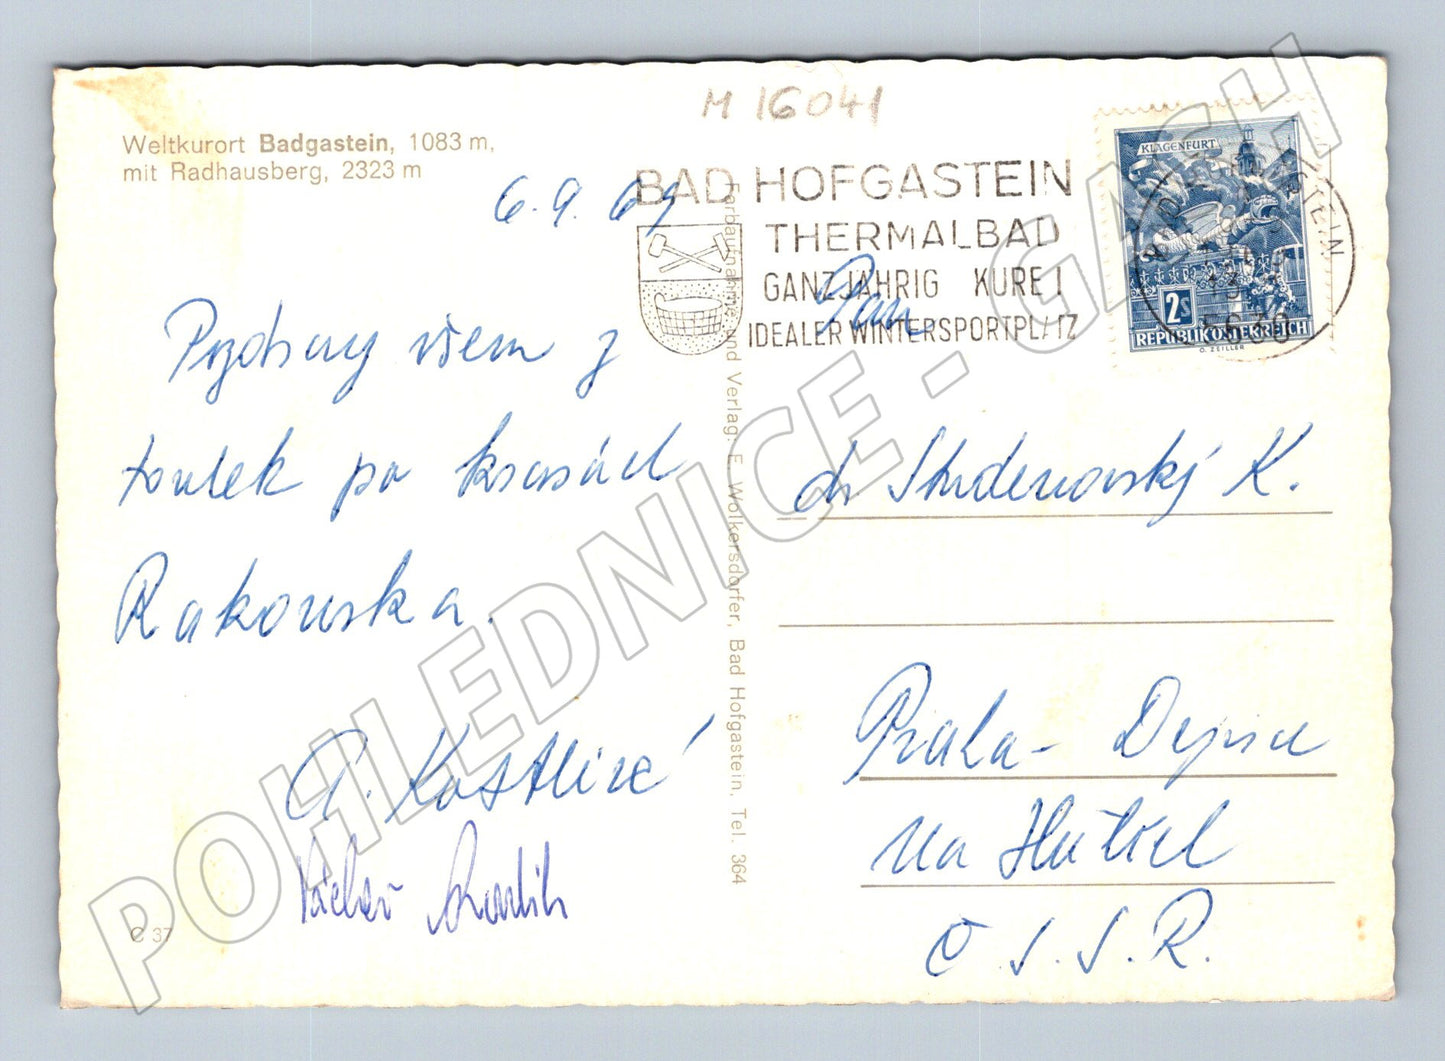 M 16041
Weltkurort Badgastein, 1083 m,
mit Radhausberg, 2323 m
6.9.69
BAD HOFGASTEIN
THERMALBAD
GANZJÄHRIG KURE
IDEALER WINTERSPORTPL
KLAGENFURT
2s
REPUBLIK ÖSTERREICH
O. ZEILLER
5630
Pozdravy všem z
toulek po krásách
Rakouska.
Kostlivé
Václav
C 37
Farbaufnahme und Verlag: E. Wolkersdorfer, Bad Hofgastein, Tel. 364
Pan
dr Studenovský K.
Praha - Dejvice
Na Hutích
Č.S.S.R.
POHLEDNICE - GASH